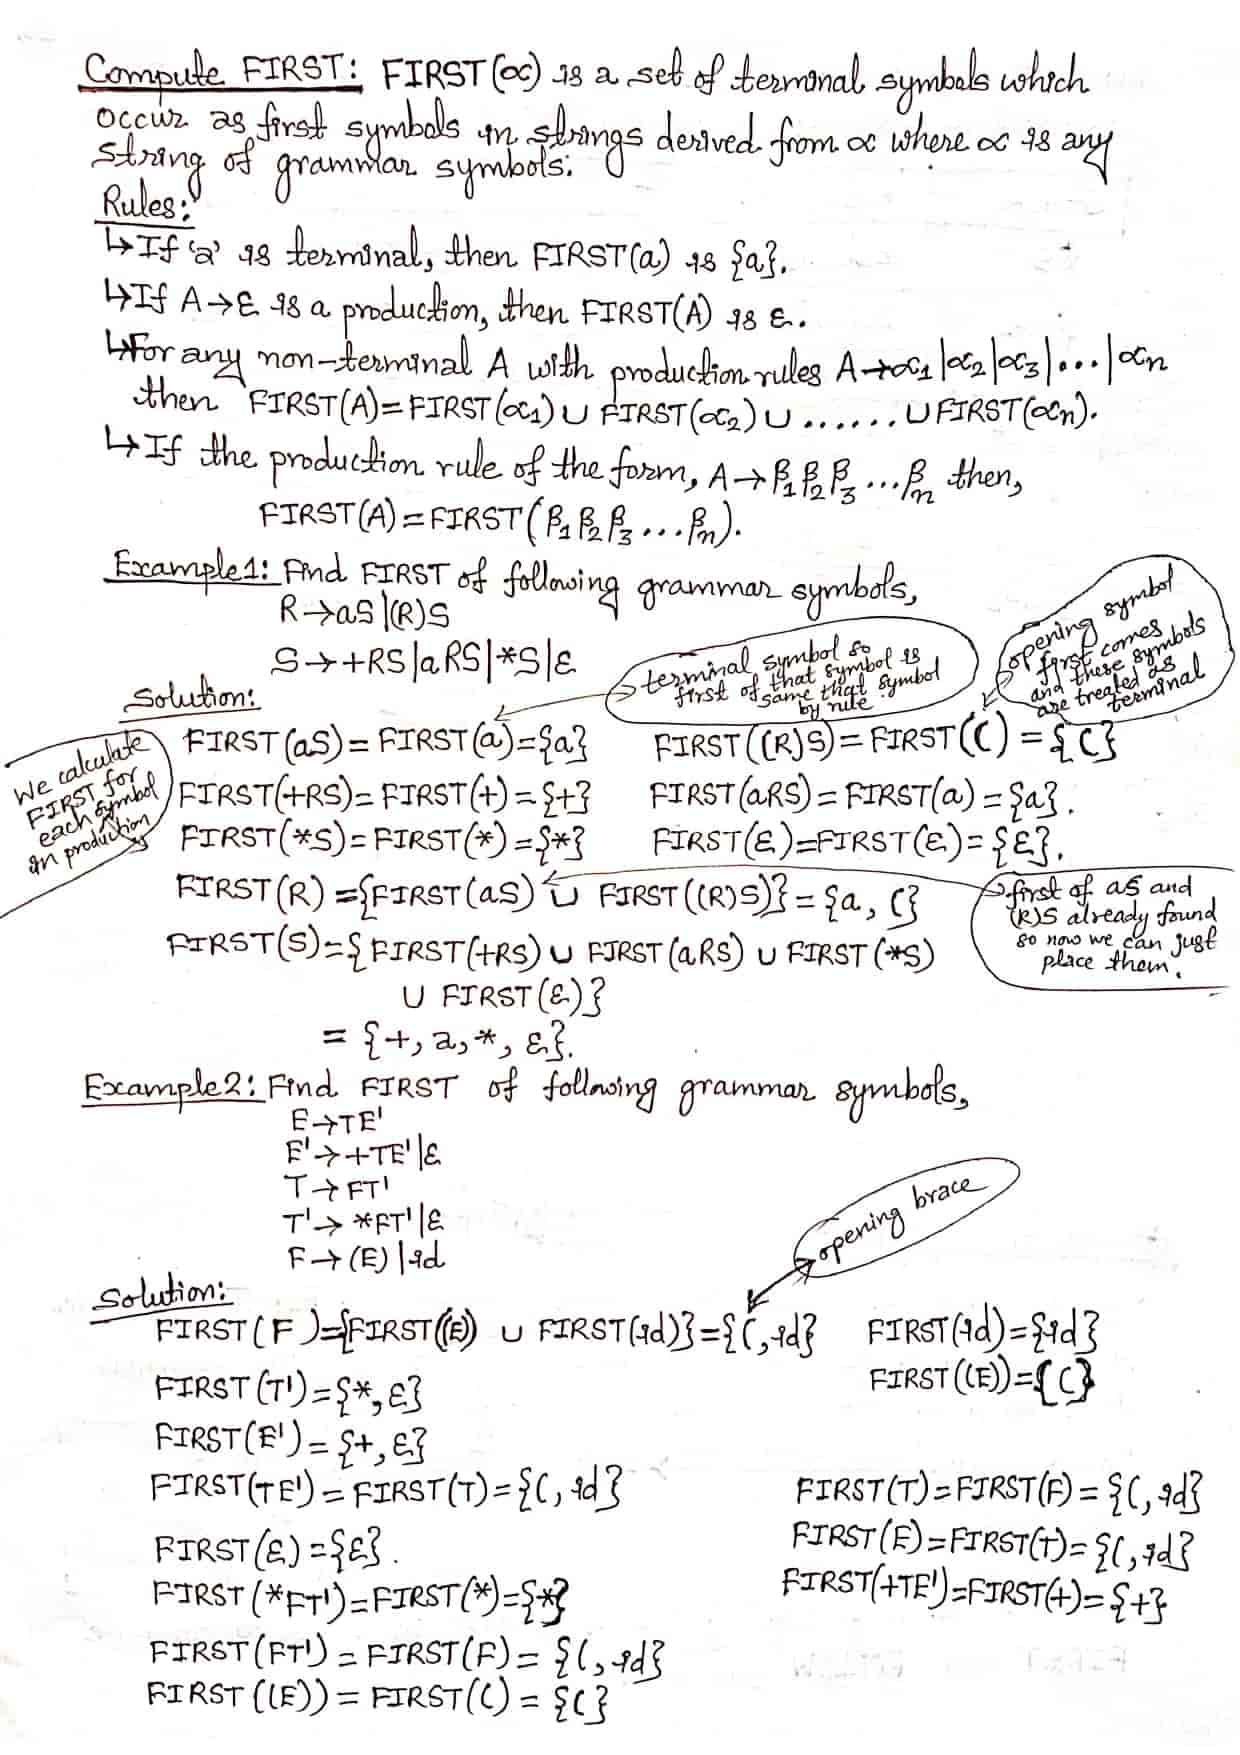 Compute FIRST: FIRST(∝) is a set of terminal symbols which
occur as first symbols in strings derived from ∝ where ∝ is any
string of grammar symbols.
Rules:
↳If 'a' is terminal, then FIRST(a) is {a}.
↳If A→ε is a production, then FIRST(A) is ε.
↳For any non-terminal A with production rules A→∝1|∝2|∝3|...|∝n
then FIRST(A)=FIRST(∝1)∪FIRST(∝2)∪.......∪FIRST(∝n).
↳If the production rule of the form, A→β1β2β3...βn then,
FIRST(A)=FIRST(β1β2β3...βn).
Example1: Find FIRST of following grammar symbols,
R→aS|(R)S
S→+RS|aRS|*S|ε
terminal symbol so
first of that symbol is
same that symbol
by rule
opening symbol
first comes
and these symbols
are treated as
terminal
Solution:
We calculate
FIRST for
each symbol
in production
FIRST(aS)=FIRST(a)={a} FIRST((R)S)=FIRST(()={(}
FIRST(+RS)=FIRST(+)={+} FIRST(aRS)=FIRST(a)={a}.
FIRST(*S)=FIRST(*)={*} FIRST(ε)=FIRST(ε)={ε}.
FIRST(R)={FIRST(aS) ∪ FIRST((R)S)}={a, (}
first of aS and
(R)S already found
so now we can just
place them.
FIRST(S)={FIRST(+RS) ∪ FIRST(aRS) ∪ FIRST(*S)
∪ FIRST(ε)}
= {+, a, *, ε}.
Example2: Find FIRST of following grammar symbols,
E→TE'
E'→+TE'|ε
T→FT'
T'→*FT'|ε
F→(E)|id
opening brace
Solution:
FIRST(F)={FIRST((E)) ∪ FIRST(id)}={(, id} FIRST(id)={id}
FIRST(T')={*, ε} FIRST((E))={(}
FIRST(E')={+, ε}
FIRST(TE')=FIRST(T)={(, id} FIRST(T)=FIRST(F)={(, id}
FIRST(ε)={ε}. FIRST(E)=FIRST(T)={(, id}
FIRST(*FT')=FIRST(*)={*} FIRST(+TE')=FIRST(+)={+}
FIRST(FT')=FIRST(F)={(, id}
FIRST((E))=FIRST(()={(}